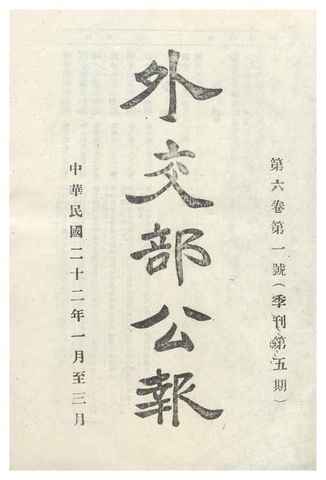 第六卷第一號(季刊第五期)
外交部公報
中華民國二十二年一月至三月